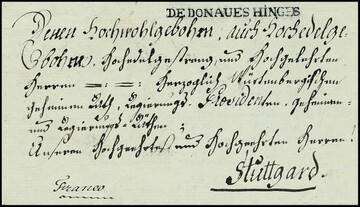 DE DONAUESHINGES
Denen Hochwohlgebohrn, auch Hochedelge-
bohrn, Hochedelgestreng und Hochgelehrten
Herren =:=:= Herzoglich Würtenbergischen
geheimen Rath, Regierungs-Præsidenten, geheimen-
und Regierungs-Räthen
Unseren Hochgeehrtest und Hochgeehrten Herren!
Stuttgard.
Franco